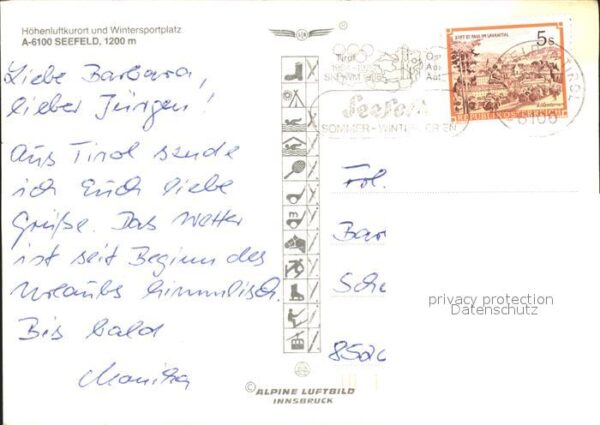 Höhenluftkurort und Wintersportplatz
A-6100 SEEFELD, 1200 m
Liebe Barbara,
lieber Jürgen!
Aus Tirol sende
ich Euch liebe
Grüße. Das Wetter
ist seit Beginn des
Urlaubs himmlisch.
Bis bald
Monika
Tirol
5s
STIFT ST. PAUL IM LAVANTTAL
REPUBLIK ÖSTERREICH
Seefeld
SOMMER-WINTER
TIROL
6100
Frl.
Bar
Sche
privacy protection
Datenschutz
8520
© ALPINE LUFTBILD
INNSBRUCK